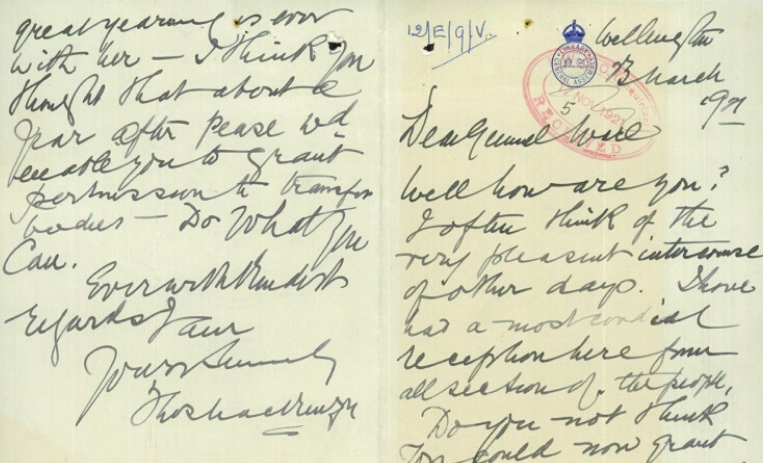 12/E/9/V.
LIBRARY
GENERAL ASSEMBLY
NOV 1921
RECEIVED
5
Wellington
March
1921
Dear General Ware
Well how are you?
I often think of the
very pleasant intercourse
of other days. I have
had a most cordial
reception here from
all section of the people,
Do you not think
You could now grant
great yearning is ever
with her — I think you
thought that about a
year after pease wd
enable you to grant
permission to transfer
bodies — Do What You
Can.
Ever with kindest
regards I am
Yours sincerely
Thos Mackenzie